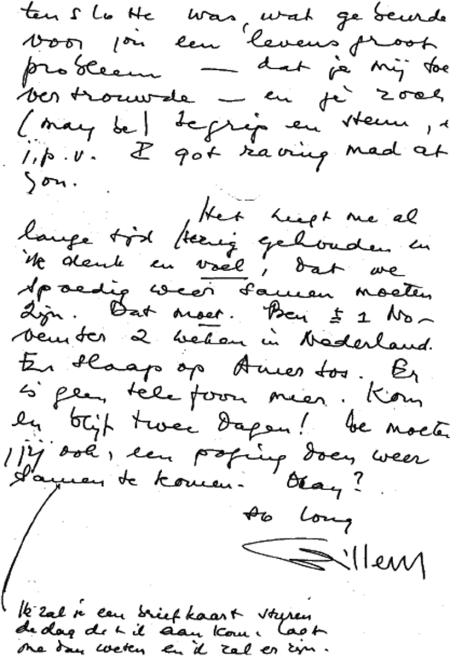 tenslotte was, wat gebeurde
voor jou een levensgroot
probleem — dat je mij toe
vertrouwde — en je zocht
(may be) begrip en steun,
i.p.v. I got raving mad at
you.
Het heeft me al
lange tijd bezig gehouden en
ik denk en voel, dat we
spoedig weer samen moeten
zijn. Dat moet. Ben ± 1 No-
vember 2 weken in Nederland.
En slaap op Amer bos. Er
is geen telefoon meer. Kom
en blijf twee dagen! We moeten
jij ook, een poging doen weer
samen te komen. Okay?
So long
Willem
Ik zal je een briefkaart sturen
de dag dat ik aan kom. Laat
me dan weten en ik zal er zijn.